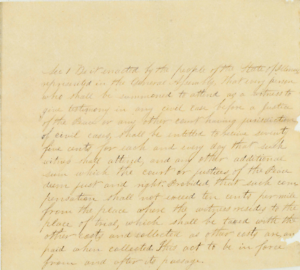 Sec 1 Be it enacted by the people of the State of Illinois
represented in the General Assembly, That every person
who shall be summoned to attend as a witness to
give testimony in any civil case before a justice
of the Peace or any other court having jurisdiction
of civil cases shall be entitled to receive seventy
five cents for each and every day that such
witness shall attend, and any other additional
sum which the court or justice of the Peace
deem just and right. Provided that such com
pensation shall not exceed ten cents per mile
from the place where the witness resides to the
place of trial, which shall be taxed with the
other costs and collected as other costs are
paid when collected. This act to be in force
from and after its passage.